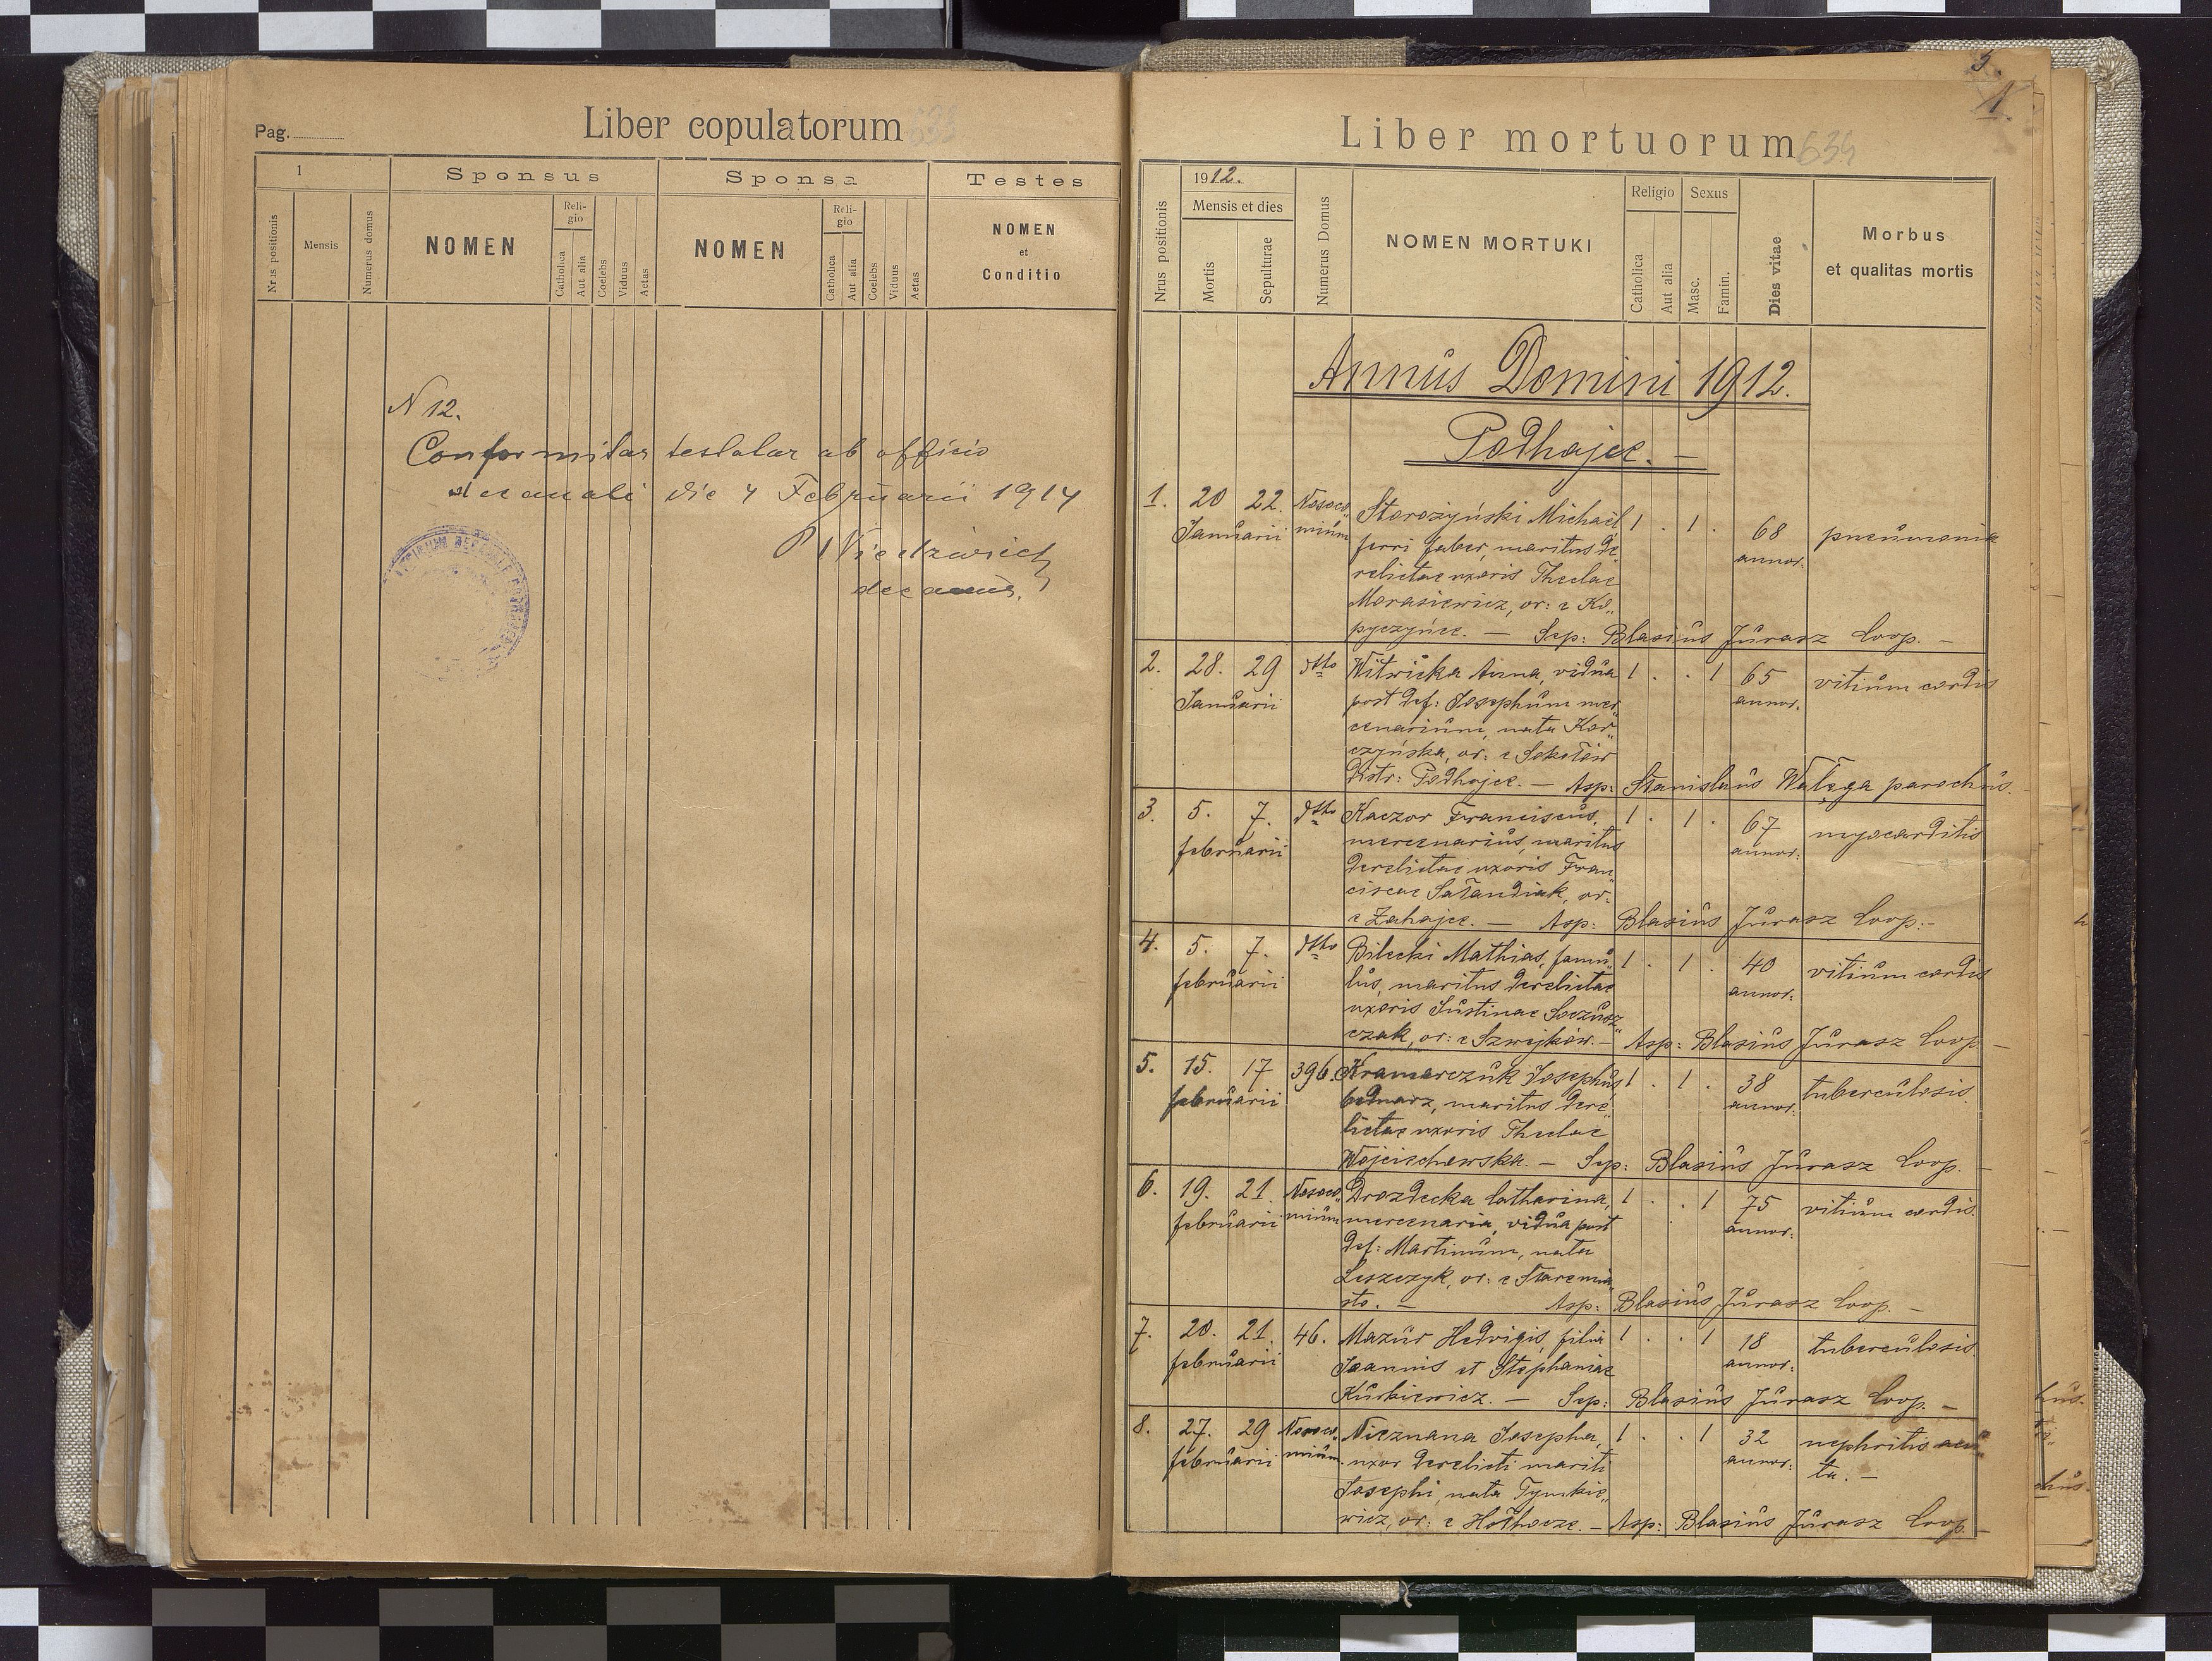 Pag.
Liber copulatorum 633
1
Sponsus
Sponsa
Testes
Nrus positionis
Mensis
Numerus domus
NOMEN
Reli-
gio
Catholica
Aut alia
Coelebs
Viduus
Aetas
NOMEN
Reli-
gio
Catholica
Aut alia
Coelebs
Viduus
Aetas
NOMEN
et
Conditio
N 12.
Conformitas testatur ab officio
decanali die 4 Februarii 1914
decanus.
3.
1.
Liber mortuorum 634
Nrus positionis
1912.
Mensis et dies
Mortis
Sepulturae
Numerus Domus
NOMEN MORTUKI
Religio
Catholica
Aut alia
Sexus
Masc.
Famin.
Dies vitae
Morbus
et qualitas mortis
Annus Domini 1912.
Podhajce. —
1. 20 22. Nosoco„ Starożyński Michaël 1 . 1 . 68 pneumonia
Januarii mium ferri faber, maritus de„ annor.
relictae uxoris Theclae
Morasiewicz, or: e Ko„
pyczyńce. — Sep: Blasius Jurasz Coop. —
2. 28. 29 dtto Witwicka Anna, vidua 1 . . 1 65 vitium cordis
Januarii post def: Josephum mer„ annor.
cenarium, nata Kor„
czyńska, or: e Sokołów
distr: Podhajce. — Asp: Stanislaus Wałęga parochus.
3. 5. 7. dtto Kaczor Franciscus, 1 . 1 . 67 myocarditis
februarii mercenarius, maritus annor:
derelictae uxoris Fran„
ciscae Sałandiak, or:
e Zahajce. — Asp: Blasius Jurasz Coop. —
4. 5. 7. dtto Bilecki Mathias, famu„ 1 . 1 . 40 vitium cordis
februarii lus, maritus derelictae annor:
uxoris Justinae
czak, or: e Szwejków. — Asp: Blasius Jurasz Coop. —
5. 15. 17 396. Kramarczuk Josephus 1 . 1 . 38 tuberculosis.
februarii bednarz, maritus dere„ annor.
lictae uxoris Theclae
Wojciechowska. — Sep: Blasius Jurasz Coop. —
6. 19. 21. Nosoco„ Drozdecka Catharina, 1 . . 1 75 vitium cordis.
februarii mium mercenaria, vidua post annor:
def: Martinum, nata
Leszczyk, or: e Staremia„
sto. — Asp: Blasius Jurasz Coop. —
7. 20. 21. 46. Mazur Hedvigis, filia 1 . . 1 18 tuberculosis
februarii Joannis et Stephaniae annor:
Kurkiewicz. — Sep: Blasius Jurasz Coop. —
8. 27. 29 Nosoco„ Nieznana Josepha, 1 . . 1 32 nephritis acu„
februarii mium. uxor derelicti mariti annor: ta. —
Josephi, nata Tymkie„
wicz, or: e Hołhocze. — Asp: Blasius Jurasz Coop. —